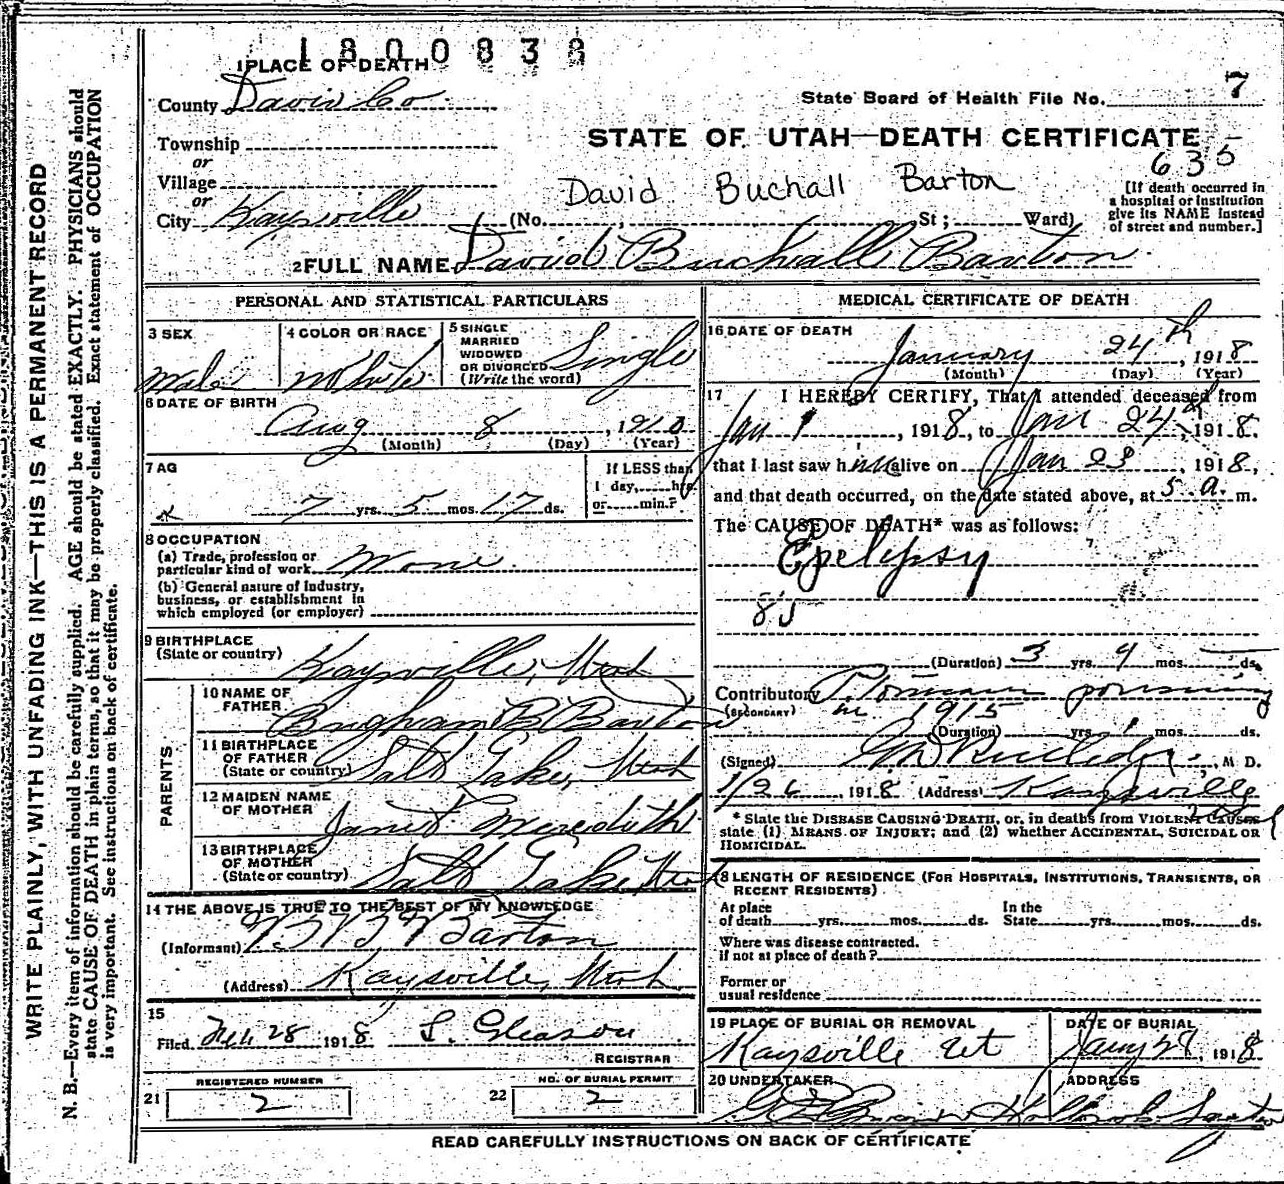 1800838
1 PLACE OF DEATH
County Davis Co
State Board of Health File No. 7
Township
STATE OF UTAH—DEATH CERTIFICATE
or
635
Village
David Buchall Barton
or
City Kaysville (No. St; Ward)
[If death occurred in
a hospital or institution
give its NAME instead
of street and number.]
2 FULL NAME David Buchall Barton
PERSONAL AND STATISTICAL PARTICULARS
3 SEX Male
4 COLOR OR RACE White
5 SINGLE
MARRIED
WIDOWED
OR DIVORCED
(Write the word) Single
6 DATE OF BIRTH
Aug 8, 1910
(Month) (Day) (Year)
7 AG
7 yrs. 5 mos. 17 ds.
If LESS than
1 day, hrs.
or min.?
8 OCCUPATION
(a) Trade, profession or
particular kind of work None
(b) General nature of Industry,
business, or establishment in
which employed (or employer)
9 BIRTHPLACE
(State or country) Kaysville, Utah
PARENTS
10 NAME OF
FATHER Brigham B Barton
11 BIRTHPLACE
OF FATHER
(State or country) Salt Lake, Utah
12 MAIDEN NAME
OF MOTHER Janet Meredith
13 BIRTHPLACE
OF MOTHER
(State or country) Salt Lake Utah
14 THE ABOVE IS TRUE TO THE BEST OF MY KNOWLEDGE
(Informant) Barton
(Address) Kaysville, Utah
15
Filed 28 1918 S. Gleason
REGISTRAR
REGISTERED NUMBER
21 2
NO. OF BURIAL PERMIT
22 2
MEDICAL CERTIFICATE OF DEATH
16 DATE OF DEATH
January 24th, 1918
(Month) (Day) (Year)
17 I HEREBY CERTIFY, That I attended deceased from
Jan 1, 1918, to Jan 24, 1918,
that I last saw him alive on Jan 23, 1918,
and that death occurred, on the date stated above, at 5 a. m.
The CAUSE OF DEATH* was as follows:
Epelipsy
85
(Duration) 3 yrs. 9 mos. ds.
Contributory Ptomain poisining
(SECONDARY) in 1915
(Duration) yrs. mos. ds.
(Signed) Rutledge, M D.
1/26 1918 (Address) Kaysville
* State the DISEASE CAUSING DEATH, or, in deaths from VIOLENT CAUSES
state (1) MEANS OF INJURY; and (2) whether ACCIDENTAL, SUICIDAL OR
HOMICIDAL.
18 LENGTH OF RESIDENCE (FOR HOSPITALS, INSTITUTIONS, TRANSIENTS, OR
RECENT RESIDENTS)
At place
of death yrs. mos. ds.
In the
State yrs. mos. ds.
Where was disease contracted.
if not at place of death?
Former or
usual residence
19 PLACE OF BURIAL OR REMOVAL
Kaysville Ut
DATE OF BURIAL
Jany 27 1918
20 UNDERTAKER
ADDRESS
Layton
READ CAREFULLY INSTRUCTIONS ON BACK OF CERTIFICATE
WRITE PLAINLY, WITH UNFADING INK—THIS IS A PERMANENT RECORD
N. B.—Every item of information should be carefully supplied. AGE should be stated EXACTLY. PHYSICIANS should
state CAUSE OF DEATH in plain terms, so that it may be properly classified. Exact statement of OCCUPATION
is very important. See instructions on back of certificate.